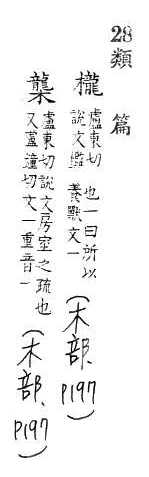 28類篇
櫳 盧東切 也一曰所以
說文檻 養獸文一
(木部、P197)
盧東切說文房室之疏也
又盧鐘切文一重音一
(木部、P197)